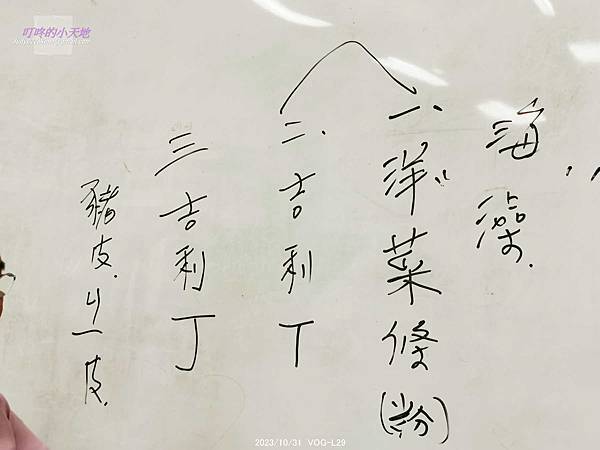 叮咚的小天地
海藻.
一、洋菜條(粉)
二、吉利T
三吉利丁
豬皮.
皮.
2023/10/31 VOG-L29